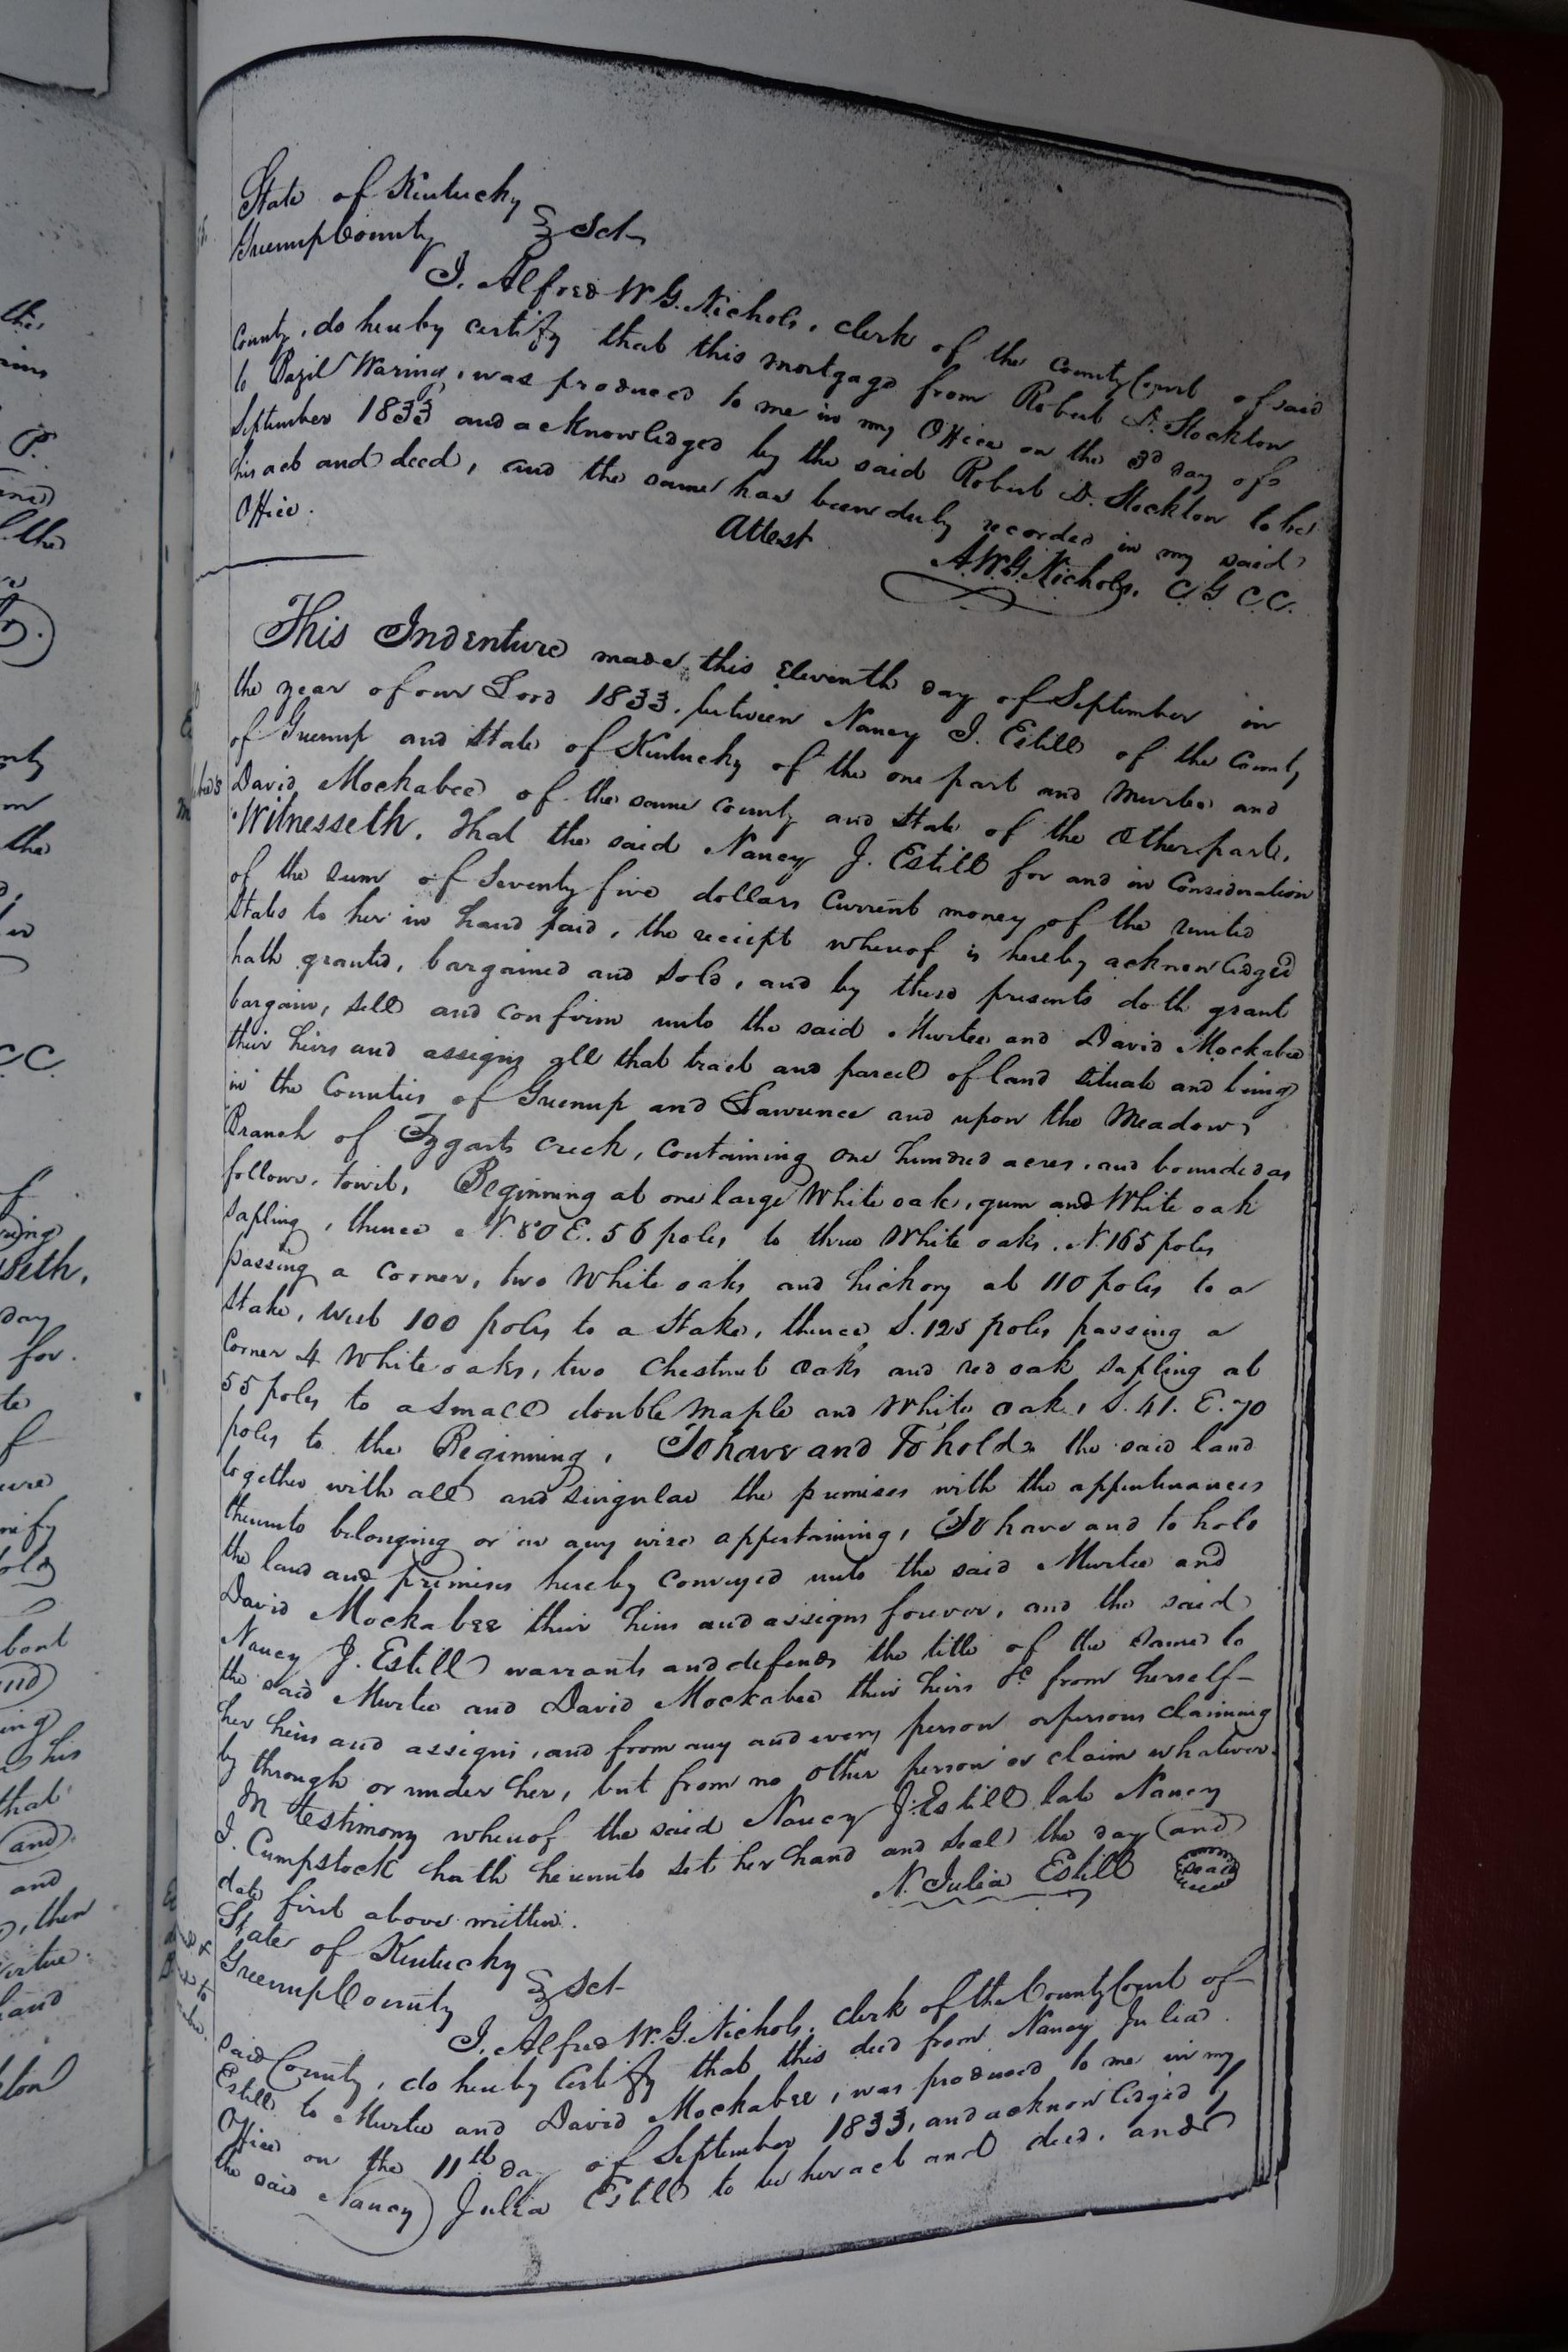 State of Kentucky
Greenup County } Sct
I, Alfred W. G. Nichols, clerk of the County Court of said
County, do hereby certify that this mortgage from Robert D. Stockton
to Bazil Waring, was produced to me in my Office on the 3d day of
September 1833 and acknowledged by the said Robert D. Stockton to be
his act and deed, and the same has been duly recorded in my said
Office.
Attest
A. W. G. Nichols, C G C C.
This Indenture made this Eleventh day of September in
the year of our Lord 1833. between Nancy J. Estill of the County
of Greenup and State of Kentucky of the one part and Murtee and
David Mockabee of the same county and State of the Other part,
Witnesseth. That the said Nancy J. Estill for and in Consideration
of the sum of Seventy five dollars Current money of the united
States to her in hand paid, the receipt whereof is hereby acknowledged
hath granted, bargained and sold, and by these presents doth grant
bargain, sell and confirm unto the said Murtee and David Mockabee
their heirs and assigns all that tract and parcel of land situate and being
in the Counties of Greenup and Lawrence and upon the Meadow
Branch of Tygarts creek, containing one hundred acres, and bounded as
follows. towit, Beginning at one large White oak, gum and White oak
sapling, thence N. 80 E. 56 poles to three White oaks. N. 165 poles
passing a corner, two White oaks and hickory at 110 poles to a
Stake, west 100 poles to a Stake, thence S. 125 poles passing a
Corner 4 White oaks, two Chestnut Oaks and red oak sapling at
55 poles to a small double maple and White oak, S. 41. E. 70
poles to the Beginning, To have and To hold the said land
together with all and singular the premises with the appurtenances
thereunto belonging or in any wise appertaining, To have and to hold
the land and premises hereby conveyed unto the said Murtee and
David Mockabee their heirs and assigns forever, and the said
Nancy J. Estill warrants and defends the title of the same to
the said Murtee and David Mockabee their heirs &c from herself
her heirs and assigns, and from any and every person or persons claiming
by through or under her, but from no other person or claim whatever.
In Testimony whereof the said Nancy J. Estill late Nancy
J. Cumpstock hath hereunto set her hand and seal the day and
date first above written.
N. Julia Estill Seal
State of Kentucky
Greenup County } Sct
I, Alfred W. G. Nichols, clerk of the County Court of
said County, do hereby Certify that this deed from Nancy Julia
Estill to Murtee and David Mockabee, was produced to me in my
Office on the 11th day of September 1833, and acknowledged by
the said Nancy Julia Estill to be her act and deed. and